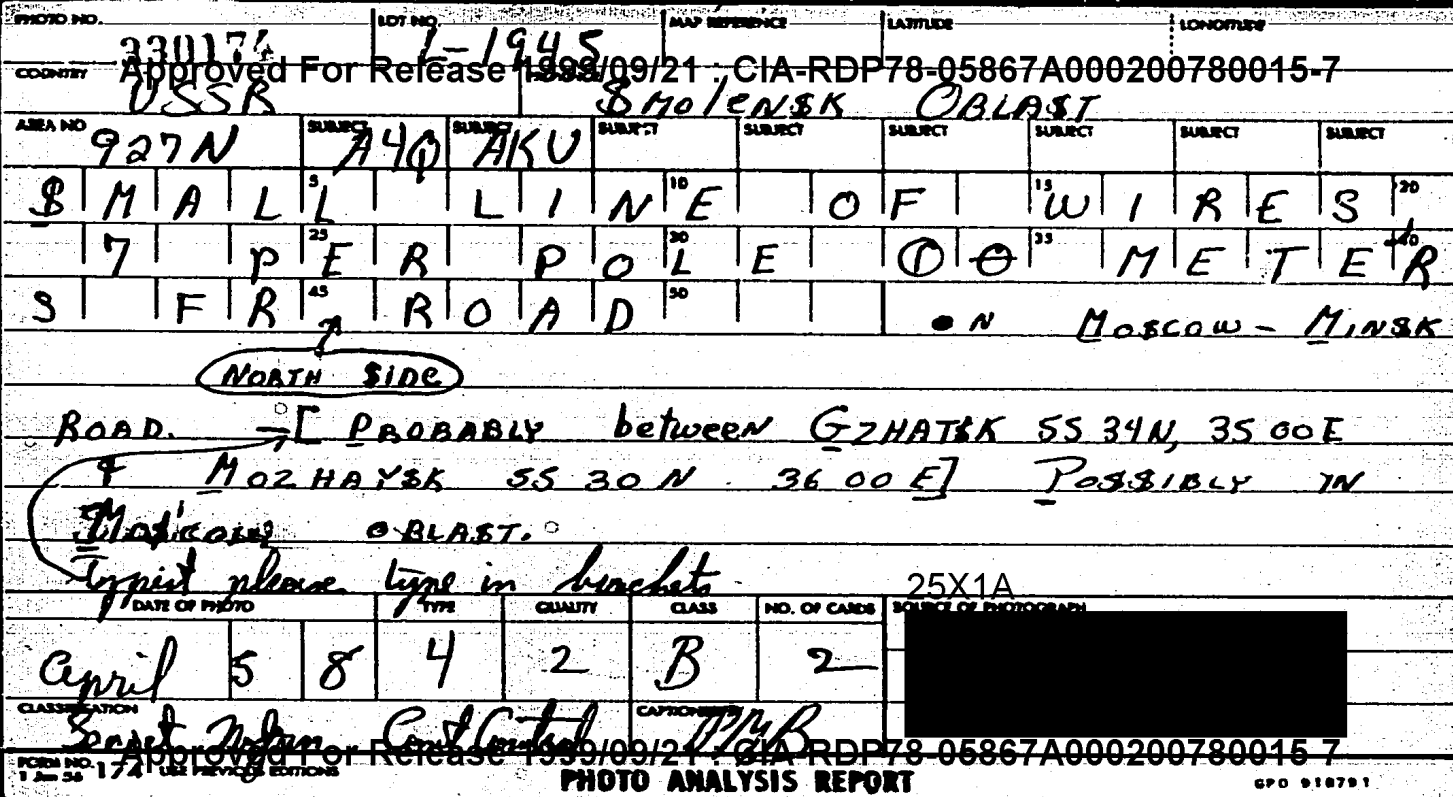 PHOTO NO. LOT NO. MAP REFERENCE LATITUDE LONGITUDE
330174 1-1945
COUNTRY Approved For Release 1999/09/21 : CIA-RDP78-05867A000200780015-7
USSR SMOLENSK OBLAST
AREA NO SUBJECT SUBJECT SUBJECT SUBJECT SUBJECT SUBJECT SUBJECT SUBJECT
927N A4Q AKU
5 10 15 20
SMALL LINE OF WIRES
25 30 35 40
7 PER POLE 10 METER
45 50
S FR ROAD ON MOSCOW - MINSK
NORTH SIDE
ROAD. [PROBABLY between GZHATSK 55 34N, 35 00E
& MOZHAYSK 55 30 N 36 00 E] POSSIBLY IN
MOSCOW OBLAST.
Typist please type in brackets
25X1A
DATE OF PHOTO TYPE QUALITY CLASS NO. OF CARDS SOURCE OF PHOTOGRAPH
April 58 4 2 B 2
CLASSIFICATION CAPTION
Secret Noforn Cont Control
Approved For Release 1999/09/21 : CIA-RDP78-05867A000200780015-7
FORM NO. 174 USE PREVIOUS EDITIONS
1 Jan 56
PHOTO ANALYSIS REPORT
GPO 918791